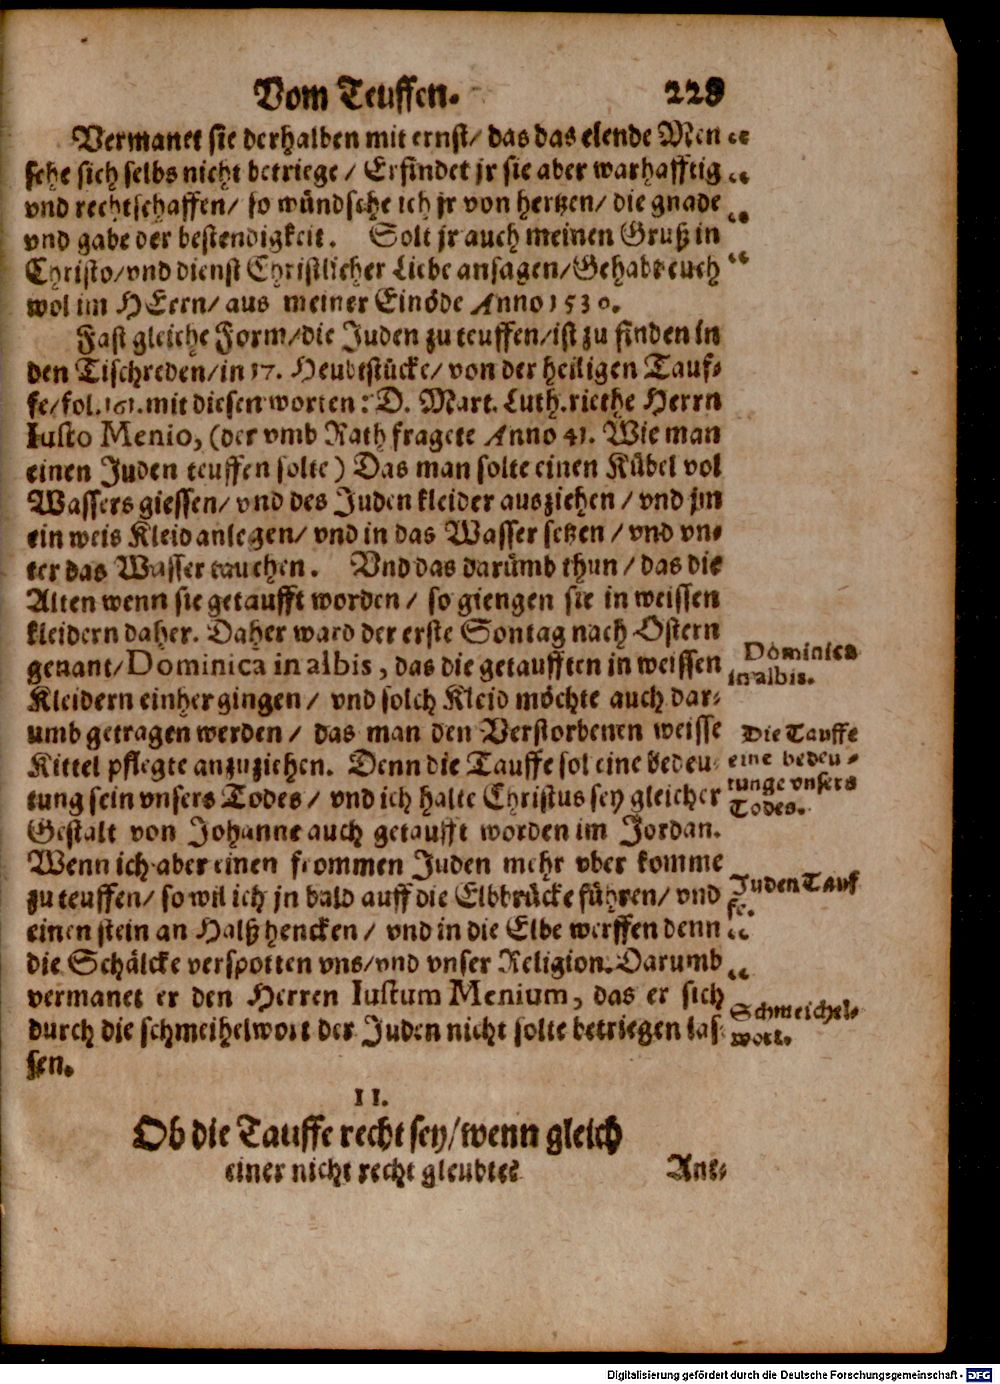 Vom Teuffen. 228
Vermanet sie derhalben mit ernst/ das das elende Men
sche sich selbs nicht betriege / Erfindet jr sie aber warhafftig
vnd rechtschaffen/ so wündsche ich jr von hertzen/ die gnade
vnd gabe der bestendigkeit. Solt jr auch meinen Gruß in
Christo/vnd dienst Christlicher Liebe ansagen/Gehabt euch
wol im HErrn/ aus meiner Einöde Anno 1530.
Fast gleiche Form/die Juden zu teuffen/ist zu finden in
den Tischreden/in 17. Heubtstücke/ von der heiligen Tauf-
fe/fol.161.mit diesen worten: D. Mart. Luth.riethe Herrn
Iusto Menio, (der vmb Rath fragete Anno 41. Wie man
einen Juden teuffen solte) Das man solte einen Kübel vol
Wassers giessen/ vnd des Juden kleider ausziehen / vnd jm
ein weis Kleid anlegen/ vnd in das Wasser setzen / vnd vn-
ter das Wasser tauchen. Vnd das darümb thun / das die
Alten wenn sie getaufft worden / so giengen sie in weissen
kleidern daher. Daher ward der erste Sontag nach Ostern
genant/Dominica in albis, das die getaufften in weissen
Kleidern einher gingen / vnd solch Kleid möchte auch dar-
umb getragen werden / das man den Verstorbenen weisse
Kittel pflegte anzuziehen. Denn die Tauffe sol eine bedeu-
tung sein vnsers Todes / vnd ich halte Christus sey gleicher
Gestalt von Johanne auch getaufft worden im Jordan.
Wenn ich aber einen frommen Juden mehr vber komme
zu teuffen/ so wil ich jn bald auff die Elbbrücke führen/ vnd
einen stein an Halß hencken / vnd in die Elbe werffen denn
die Schälcke verspotten vns/vnd vnser Religion. Darumb
vermanet er den Herren Iustum Menium, das er sich
durch die schmeihelwort der Juden nicht solte betriegen las-
sen.
Dominica
in albis.
Die Tauffe
eine bedeu-
tunge vnsers
Todes.
Juden Tauf
fe.
Schmeichel-
wort.
II.
Ob die Tauffe recht sey/wenn gleich
einer nicht recht gleubtet
Ant-
Digitalisierung gefördert durch die Deutsche Forschungsgemeinschaft - DFG